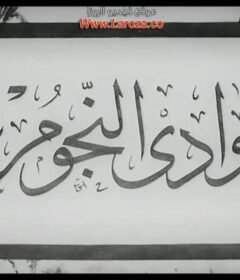 موقع فيديو لاروزا
Www.Laroza.co
وادى النجُّوم